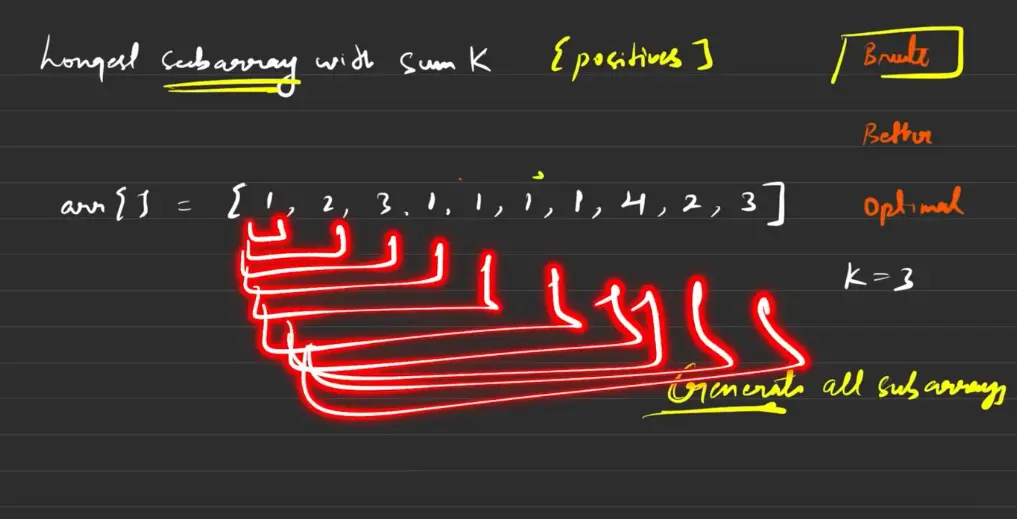 Longest subarray with sum K [positives]
Brute
Better
arr[] = [1, 2, 3, 1, 1, 1, 1, 4, 2, 3]
Optimal
K = 3
Generate all subarrays